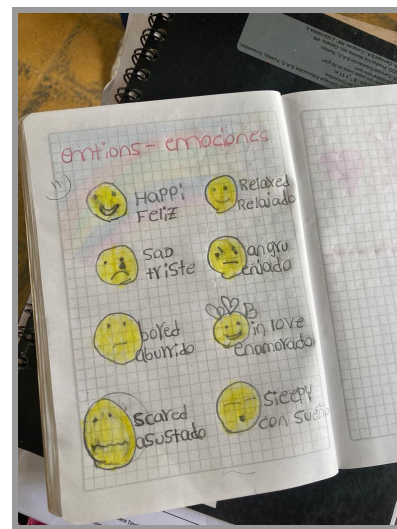 emtions - emociones
Happi
Feliz
Relaxed
Relajado
Sad
triste
angru
enjado
bored
aburrido
in love
enamorado
scared
asustado
Sleepy
con sueño